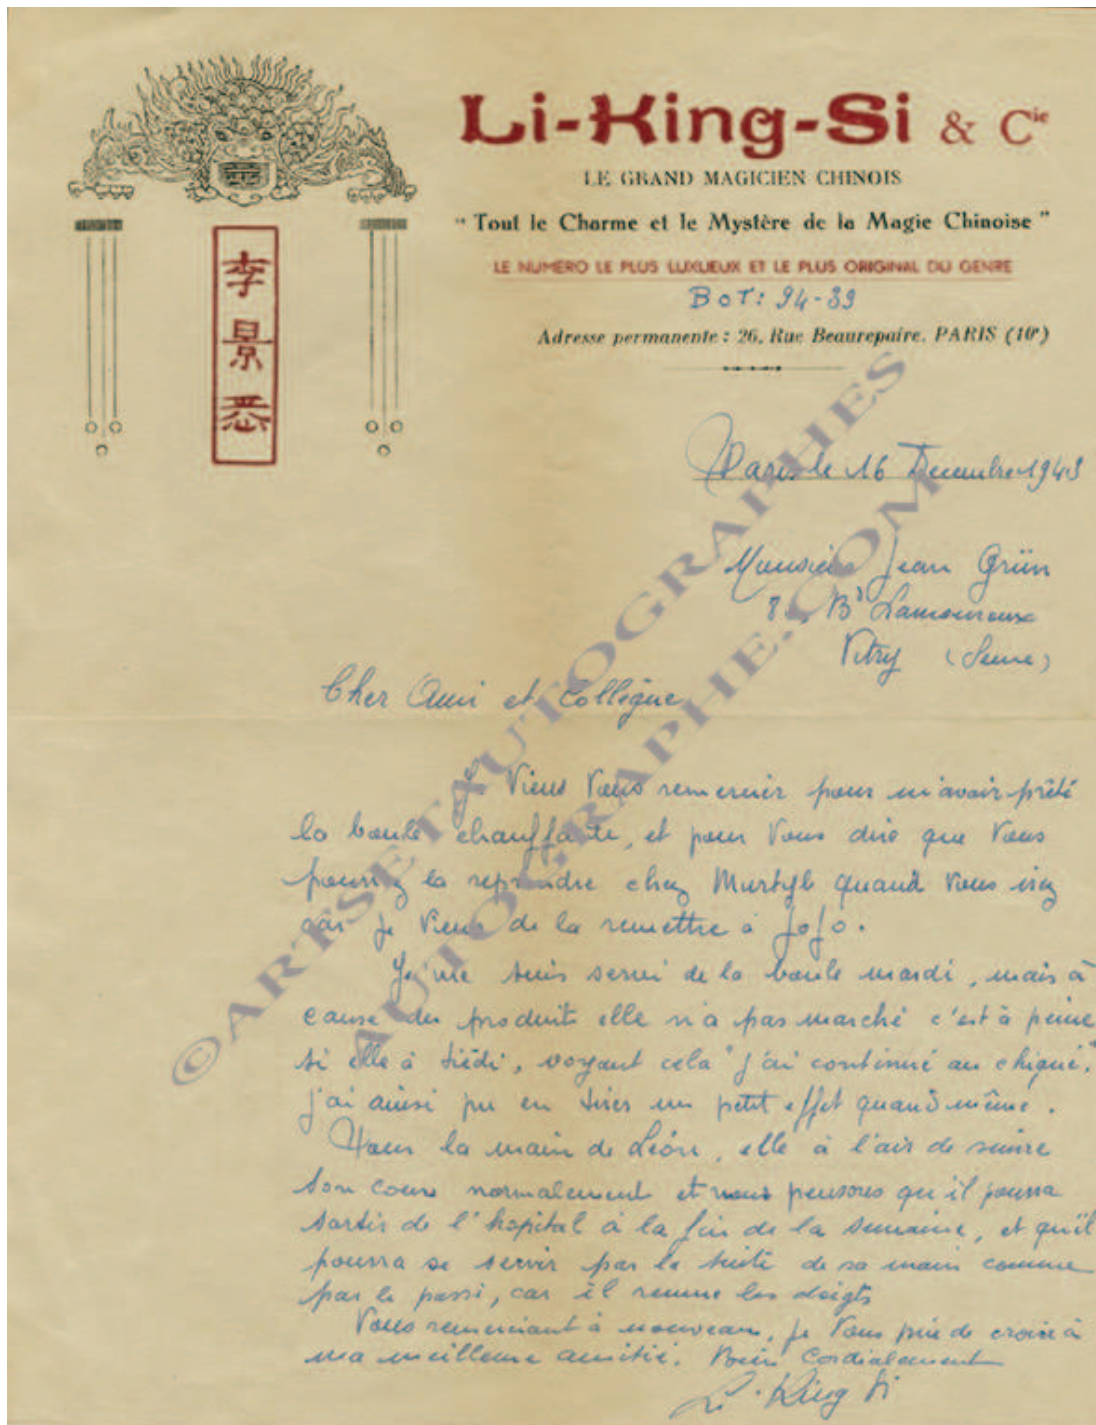 Li-King-Si & Cie
LE GRAND MAGICIEN CHINOIS
"Tout le Charme et le Mystère de la Magie Chinoise"
LE NUMERO LE PLUS LUXUEUX ET LE PLUS ORIGINAL DU GENRE
BOT: 94-39
Adresse permanente : 26, Rue Beaurepaire, PARIS (10e)
李
景
悉
Paris le 16 Decembre 1943
Monsieur Jean Grün
Bd Lamouroux
Vitry (Seine)
Cher Ami et Collègue
Je Viens Vous remercier pour m'avoir prêté
la boule chauffante, et pour Vous dire que Vous
pourrez la reprendre chez quand Vous irez
car je Viens de la remettre à Jojo.
Je me suis servi de la boule mardi, mais à
cause des produits elle n'a pas marché c'est à peine
si elle à tiédi, voyant cela "j'ai continué au chiqué"
j'ai ainsi pu en tirer un petit effet quand même.
Pour la main de Léon, elle à l'air de suivre
son cours normalement et nous pensons qu'il pourra
sortir de l'hopital à la fin de la semaine, et qu'il
pourra se servir par la suite de sa main comme
par le passé, car il remue les doigts
Vous remerciant à nouveau, je Vous prie de croire à
ma meilleure amitié. Bien Cordialement
Li-King Si
©ARTSETAUTOGRAPHES
AUTOGRAPHE.COM